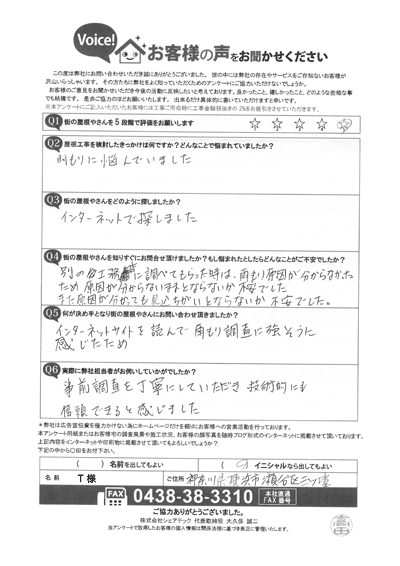 Voice!
お客様の声をお聞かせください
この度は弊社にお問い合わせいただき誠にありがとうございました。世の中には弊社の存在やサービスをご存知ないお客様が
沢山いらっしゃいます。その方たちに弊社をよく知っていただくためのアンケートにご協力いただけないでしょうか。
お客様のご意見をお聞かせいただき今後の活動に反映したいと考えております。良かったこと、嬉しかったこと、どのような些細な事
でも結構です。是非ご協力のほどお願いいたします。出来るだけ具体的に書いていただけますと幸いです。
※本アンケートにご記入いただいたお客様には工事ご用命時に工事金額税抜きの2%をお値引きさせていただきます。
Q1 街の屋根やさんを5段階で評価をお願いします ☆ ☆ ☆ ☆ ☆
Q2 屋根工事を検討したきっかけは何ですか？どんなことで悩まれていましたか？
雨もりに悩んでいました
Q3 街の屋根やさんをどのように探しましたか？
インターネットで探しました
Q4 街の屋根やさんを知りすぐにお問合せ頂けましたか？もし悩まれたとしたらどんなことがご不安でしたか？
別の 工務 に調べてもらった時は、雨もり原因が分からなかった
ため原因が分からないままとならないか不安でした
また原因が分かっても見込ちがいとならないか不安でした。
Q5 何が決め手となり街の屋根やさんにお問い合わせ頂きましたか？
インターネットサイトを読んで雨もり調査に強そうに
感じたため
Q6 実際に弊社担当者がお伺いしていかがでしたか？
事前調査を丁寧にしていただき技術的にも
信頼できると感じました
＊弊社は広告宣伝費を極力かけない為にホームページだけを頼りにお客様への営業活動を行っております。
本アンケート用紙またはお客様宅の調査風景や施工状況、お客様の顔写真を随時ブログ形式のインターネットに掲載させて頂いております。
上記内容をインターネットや印刷物に掲載させて頂いてもよろしいでしょうか？
下記の中から〇印をお付け下さい。
（ ）名前を出してもよい （〇）イニシャルなら出してもよい
名前 T様 ご住所 神奈川県横浜市瀬谷区三ツ境
FAX 0438-38-3310 本社直通 FAX番号
ご協力ありがとうございました。
株式会社シェアテック 代表取締役 大久保 誠二
当アンケートで取得したお客様の個人情報は関係法規に基づき厳正に管理いたします。